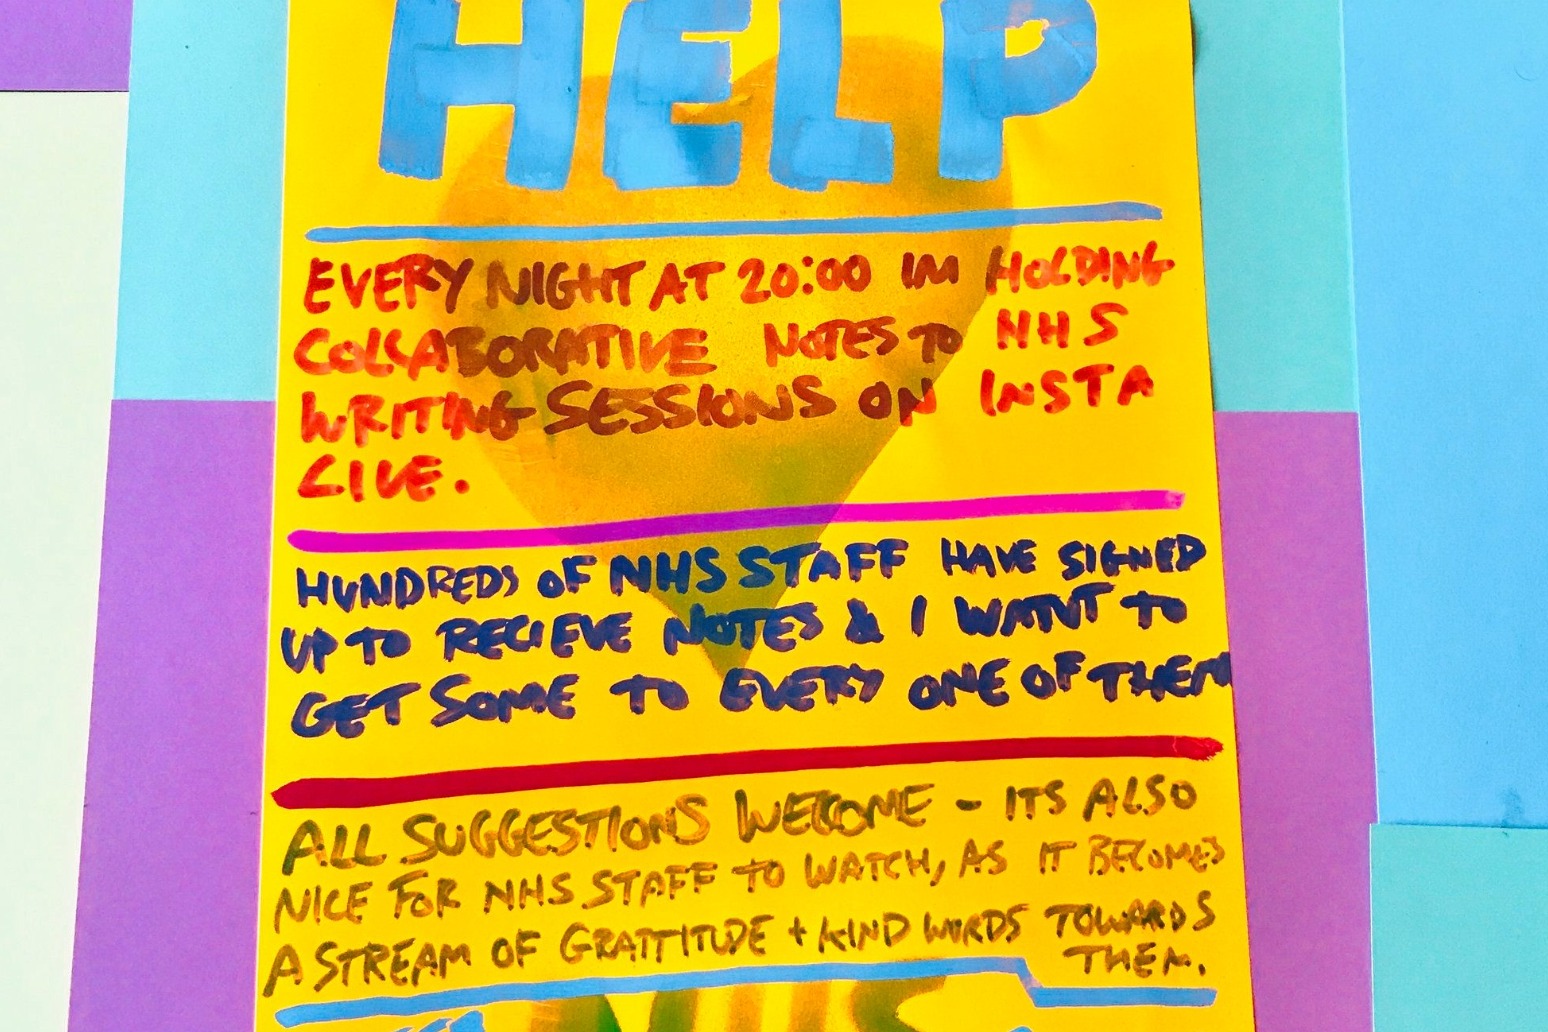 HELP
EVERY NIGHT AT 20:00 IM HOLDING
COLLABORATIVE NOTES TO NHS
WRITING SESSIONS ON INSTA
LIVE.
HUNDREDS OF NHS STAFF HAVE SIGNED
UP TO RECIEVE NOTES & I WANT TO
GET SOME TO EVERY ONE OF THEM
ALL SUGGESTIONS WELCOME - ITS ALSO
NICE FOR NHS STAFF TO WATCH, AS IT BECOMES
A STREAM OF GRATTITUDE + KIND WORDS TOWARDS
THEM.